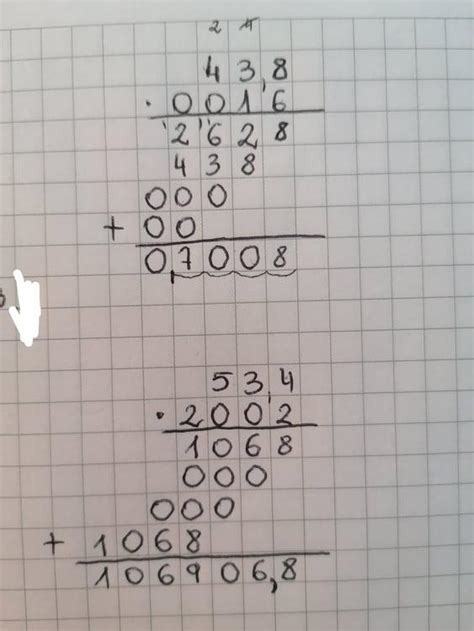 2 4
43,8
· 0016
2628
438
000
+ 00
0,7008
53,4
· 2002
1068
000
000
+ 1068
106906,8